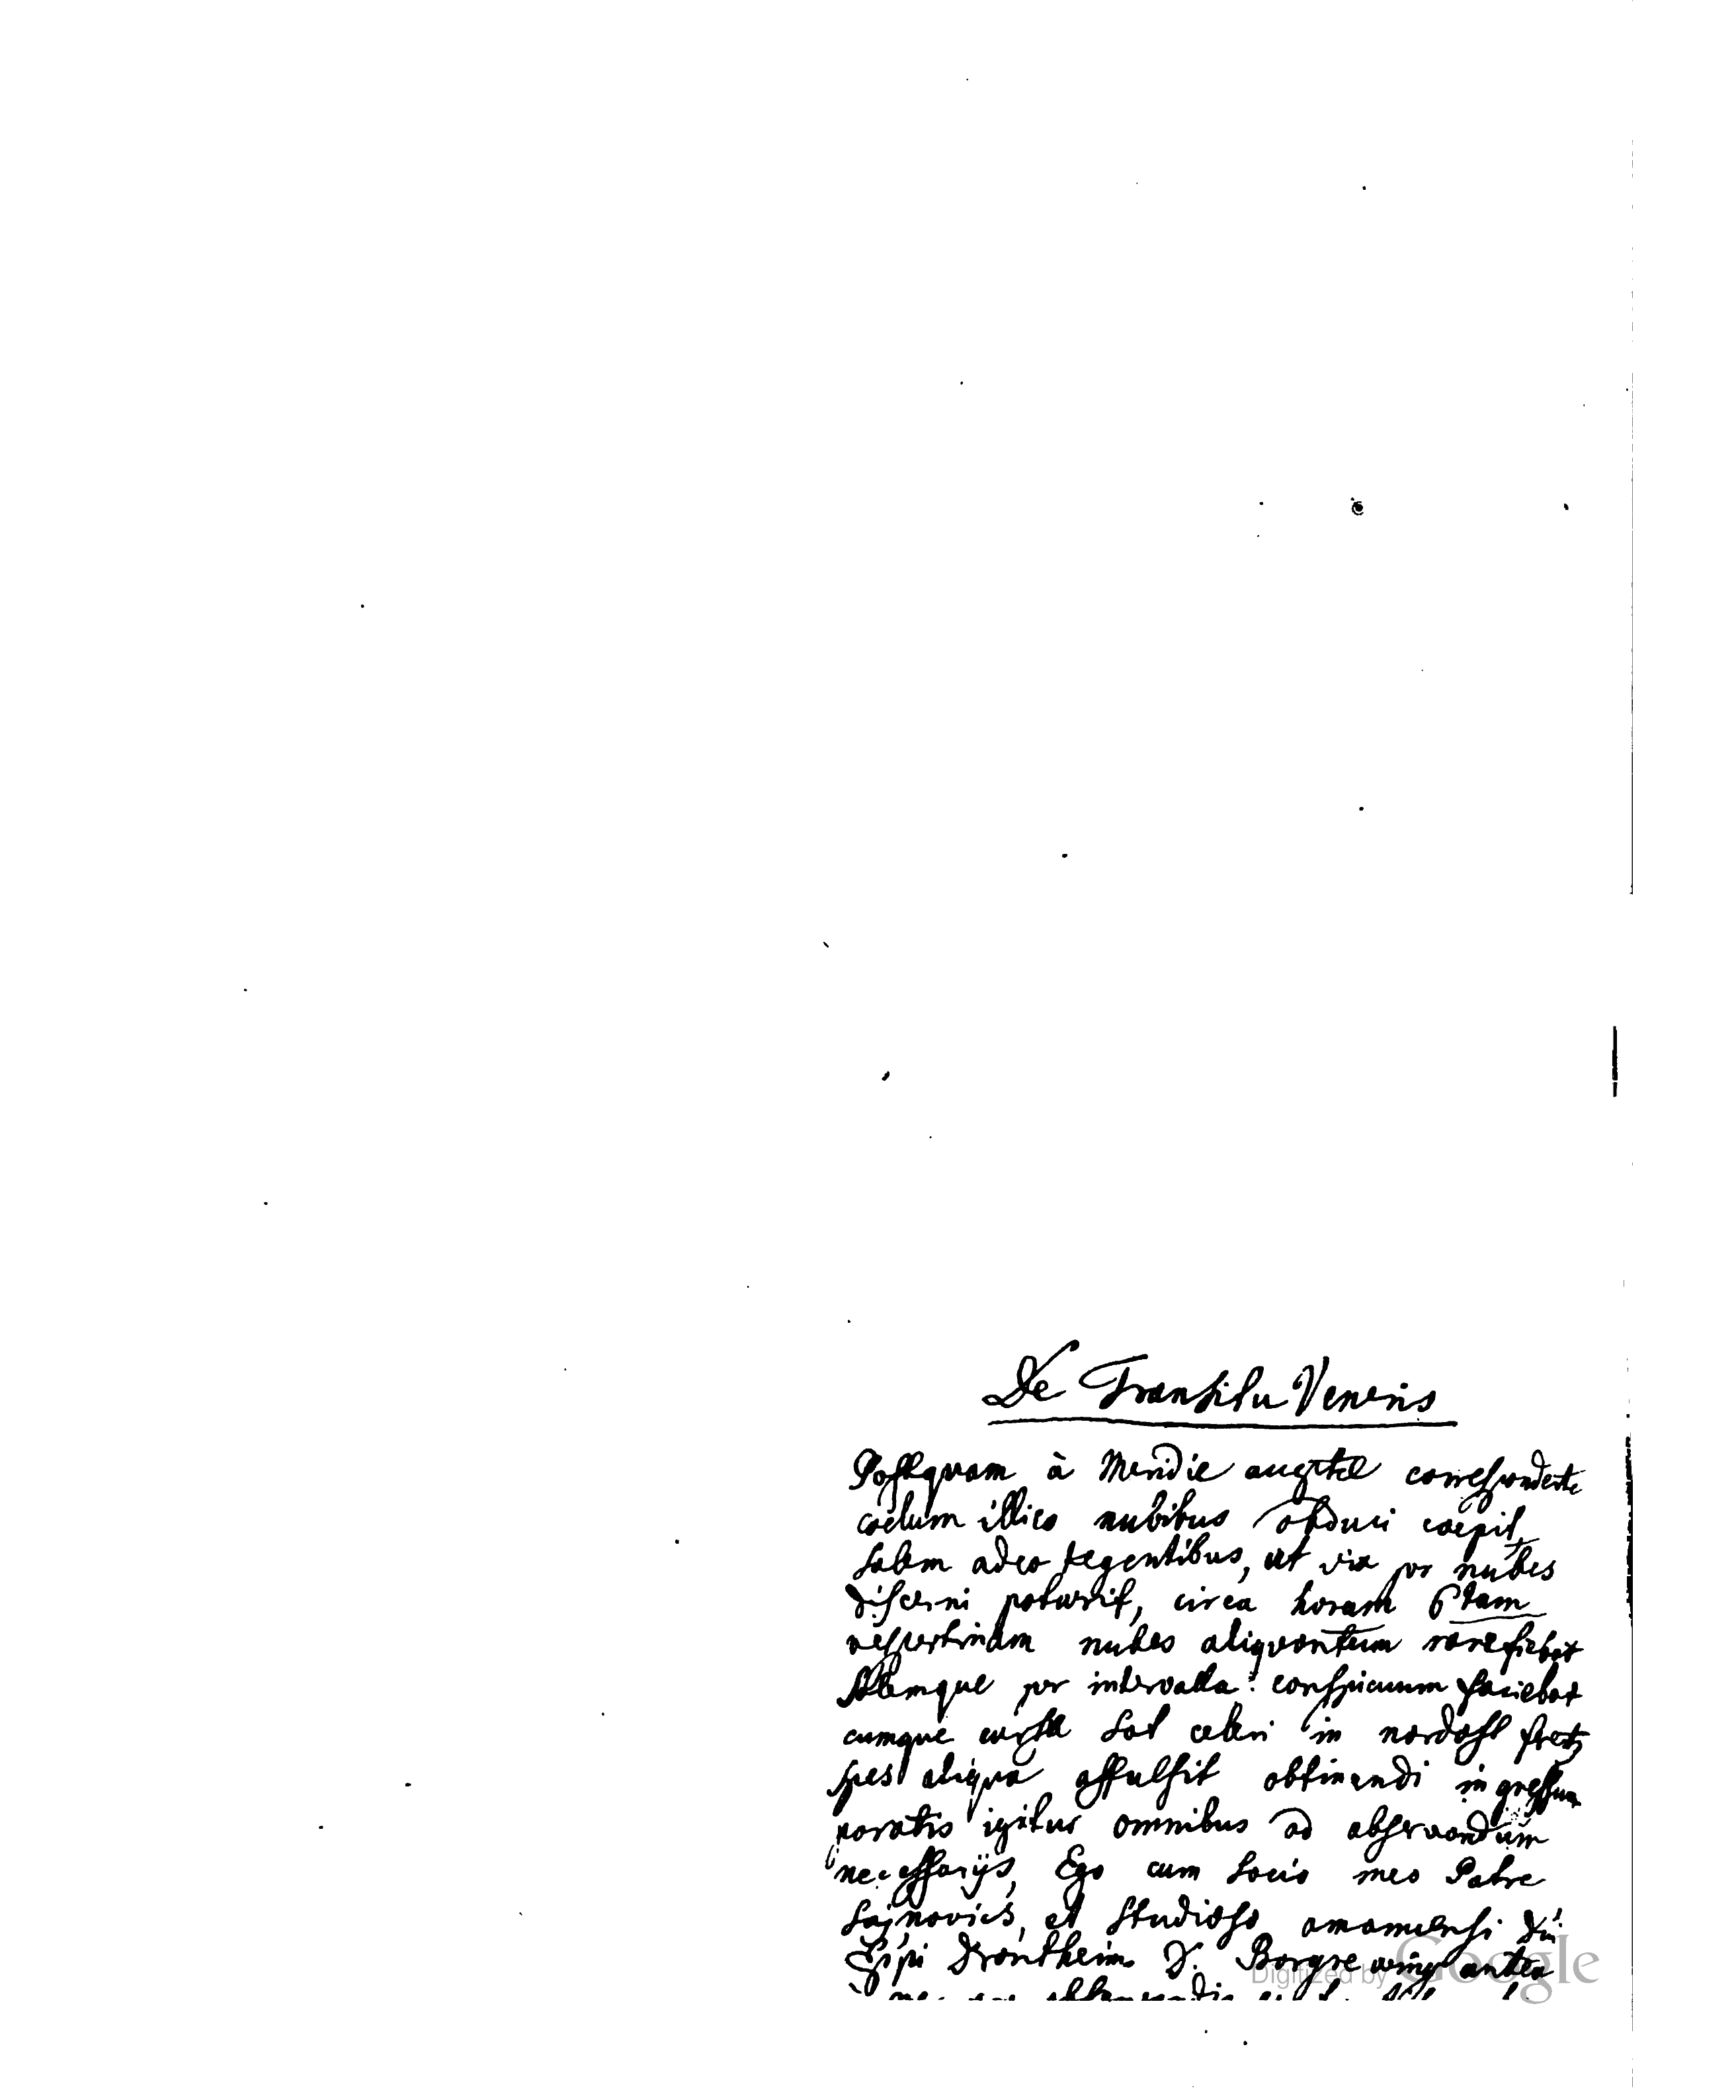 De Transitu Veneris
Postquam à Meridie correspondente
coelum illico nubibus obduci coepit,
Solem adeo tegentibus, ut vix per nubes
discerni potuerit, circa horam 6tam
vespertinam nubes aliquantum rarefiebat
Solemque per intervalla: conspicuum faciebat
cumque Sol celeri in nordost
spes aliqua affulsit obtinendi ingressum
paratis igitur omnibus ad observandum
necessarijs, Ego cum Socio meo Patre
Sajnovics, et Studioso amanuensi
Drontheim D. Borgrewing antea
Digitized by Google